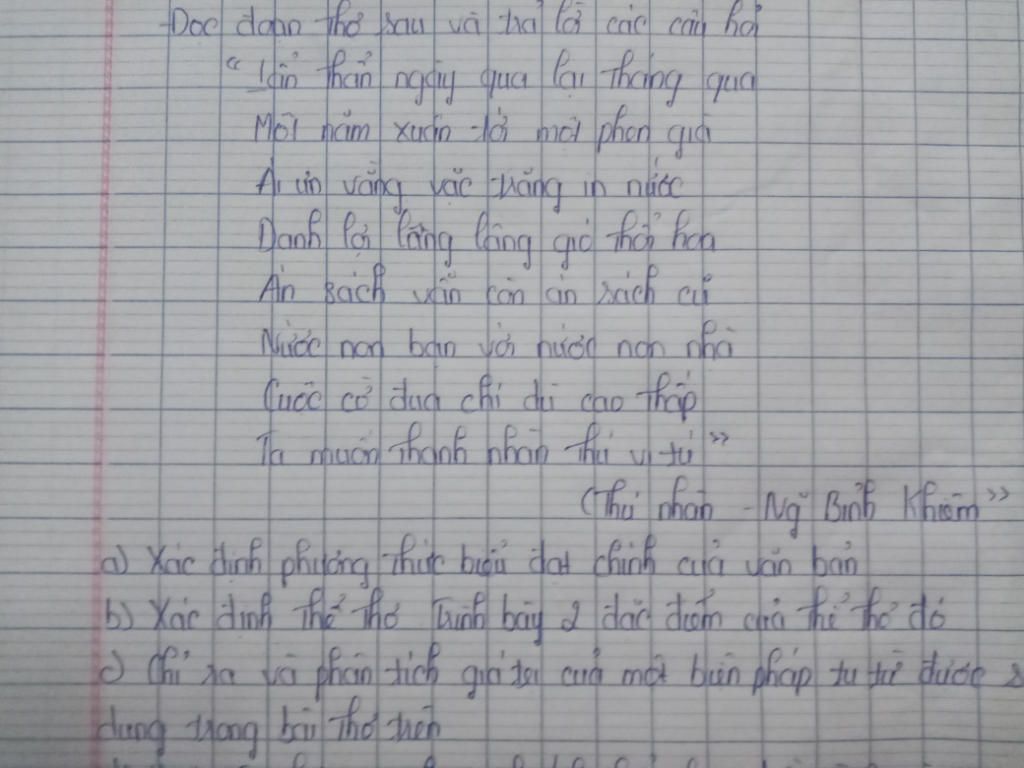 Đọc đoạn thơ sau và trả lời các câu hỏi
"Lẩn thẩn ngày qua lại tháng qua
Một năm xuân tới một phen già
Ái ưu vằng vặc trăng in nước
Danh lợi lâng lâng gió thổi hoa
Án sách vẫn còn án sách cũ
Nước non bạn với nước non nhà
Cuộc cờ đua chí dù cao thấp
Ta muốn thanh nhàn thú vị từ"
(Thú nhàn - Ng~ Bỉnh Khiêm"
a) Xác định phương thức biểu đạt chính của văn bản
b) Xác định thể thơ Trình bày 2 đặc điểm của thể thơ đó
c) Chỉ ra và phân tích giá trị của một biện pháp tu từ được s
dụng trong bài thơ trên